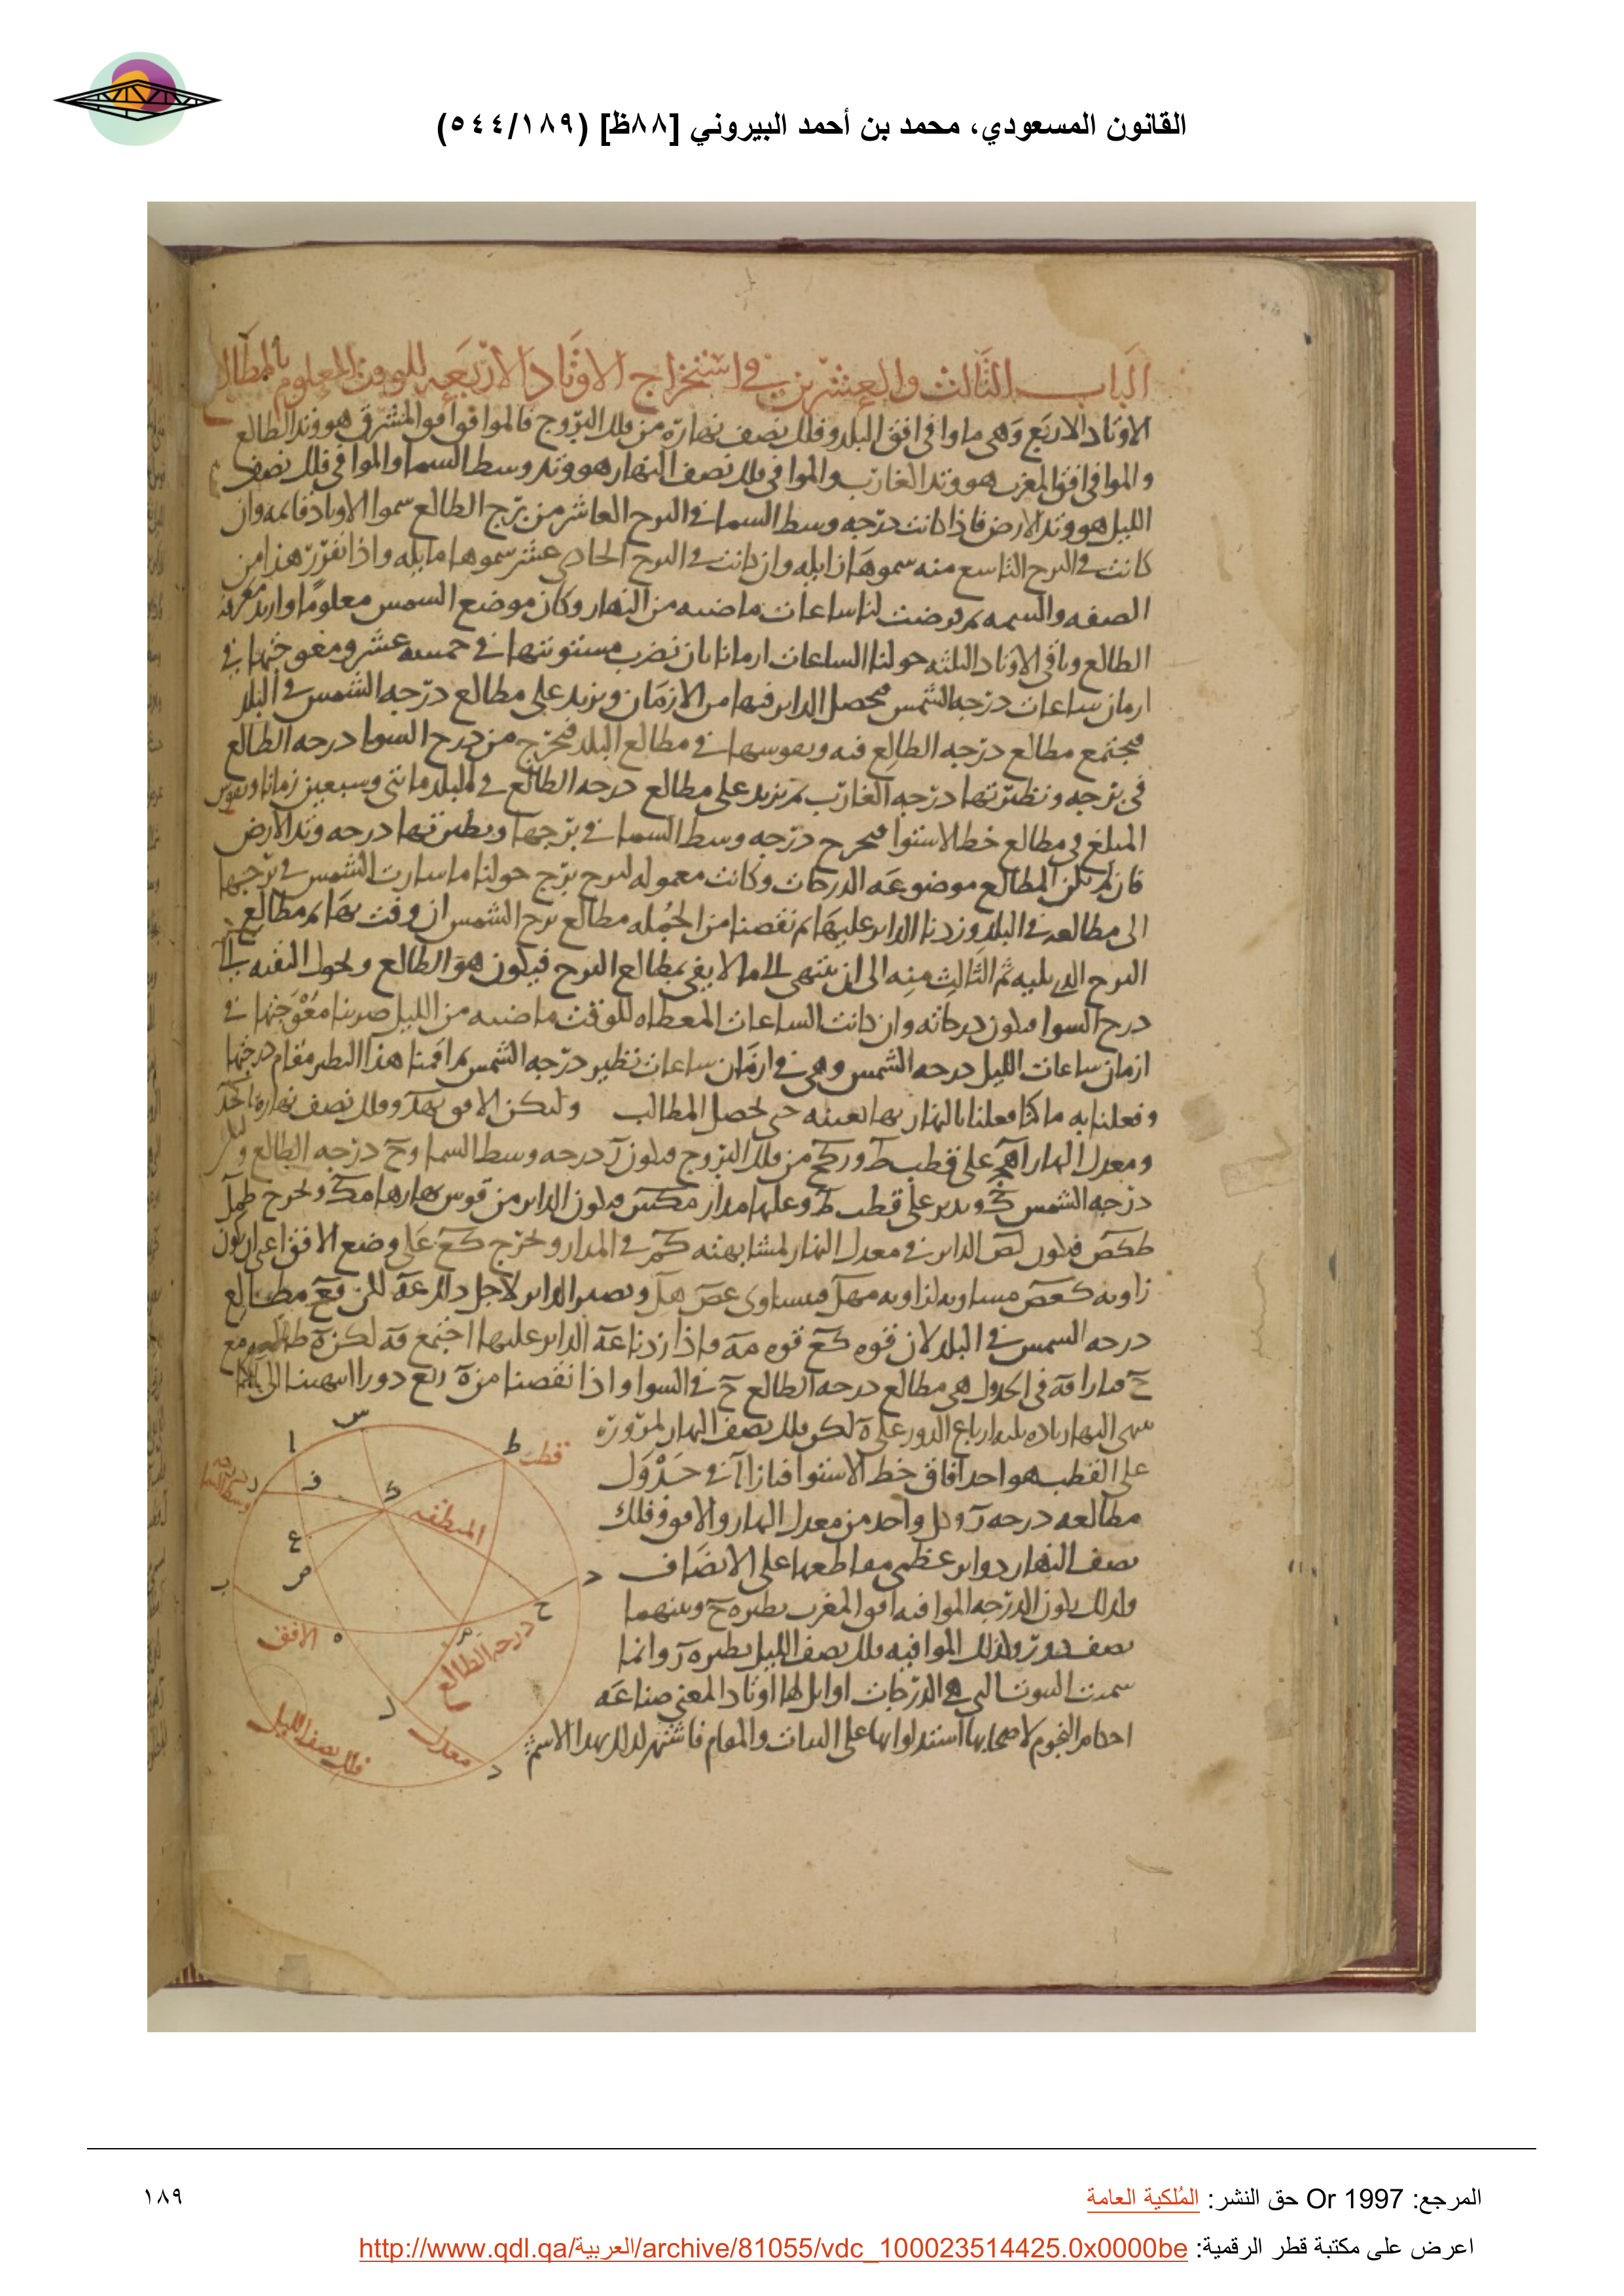 القانون المسعودي، محمد بن أحمد البيروني [٨٨ظ] (٥٤٤/١٨٩)
الباب الثالث والعشرين في استخراج الاوتاد الاربعة للوقت المعلوم بالمطالع
الاوتاد الاربع وهي ما وافى افق البلد وفلك نصف نهاره من فلك البروج فالموافق افق المشرق هو وتد الطالع
والموافى افق المغرب هو وتد الغارب والموافى فلك نصف النهار هو وتد وسط السما والموافى فلك نصف
الليل هو وتد الارض فاذا كانت درجه وسط السما في البرج العاشر من برج الطالع سموا الاوتاد قائمه وان
كانت في البرج التاسع منه سموها زايله وان كانت في البرج الحادى عشر سموها مايله واذا تقرر هذا من
الصفه والسمه ثم فرضت لنا ساعات ماضيه من النهار وكان موضع الشمس معلوما واريد معرفة
الطالع وباقي الاوتاد الثلثه حولنا الساعات ازمانا بان نضرب مستويتها في خمسه عشر ومعوجتها في
ازمان ساعات درجه الشمس فيحصل الداير فيها من الازمان ونزيد على مطالع درجه الشمس في البلد
فيجتمع مطالع درجه الطالع فيه ونقوسها في مطالع البلد فيخرج من درج السوا درجه الطالع
في برجه ونظيرتها درجه الغارب ثم نزيد على مطالع درجه الطالع في البلد مائتى وسبعين زمانا ونقوس
المبلغ في مطالع خط الاستوا فيخرج درجه وسط السما في برجها ونظيرتها درجه وتد الارض
فان لم تكن المطالع موضوعه الدرجات وكانت معموله لبرج برج حولنا ما سارت الشمس في برجها
الى مطالعه في البلد وزدنا الداير عليها ثم نقصنا من الجمله مطالع برج الشمس ان وفت بها ثم مطالع
البرج الذى يليه ثم الثالث منه الى ان ينتهى الى ما لا يفي بمطالع البرج فيكون هو الطالع ونحول البقيه الى
درج السوا فيكون درجاته وان كانت الساعات المعطاه للوقت ماضيه من الليل ضربنا معوجتها في
ازمان ساعات الليل لدرجه الشمس وهى ازمان ساعات نظير درجه الشمس ثم اقمنا هذا النظير مقام درجتها
وفعلنا به ما كنا فعلنا بالنهار بها بعينه حتى تحصل المطالب وليكن الافق وفلك نصف نهاره
ومعدل النهار على قطب من فلك البروج فيكون درجه وسط السما و درجه الطالع وليكن
درجه الشمس وندير على قطب وعليها مدار فيكون الداير من قوس نهارها ونخرج
فيكون الداير في معدل النهار لمشابهته في المدار ونخرج على وضع الافق اعنى ان يكون
زاويه مساويه لزاويه فيساوى ويصير الداير لاجل ذلك لكن مطالع
درجه الشمس في البلد لان قوه قوه واذا زدنا الداير عليها اجتمع لكن طالع مع
في الجدول هى مطالع درجه الطالع في السوا واذا نقصنا من ربع دور انتهينا الى
على القطب هو احد افاق خط الاستوا فبازا في جدول
مطالعه درجه وكل واحد من معدل النهار والافق وفلك
نصف النهار دواير عظمى مقاطعها على الانصاف
ولذلك يكون الدرجه الموافيه افق المغرب نظيره وبينهما
نصف دور وكذلك الموافيه فلك نصف الليل نظيره وانما
سميت البيوت التي هذه الدرجات اوايل لها اوتادا لمعنى صناعه
احكام النجوم لاصحابها استدلوا بها على الثبات والمقام فاشتهر لذلك بهذا الاسم
قطب
ط
س
ا
ف
ك
المنطقه
ع
ص
ب
ح
ه
الافق
درجه الطالع
ل
معدل
د
فلك نصف الليل
درجه وسط السما
المرجع: Or 1997 حق النشر: المُلكية العامة
١٨٩
اعرض على مكتبة قطر الرقمية: http://www.qdl.qa/العربية/archive/81055/vdc_100023514425.0x0000be